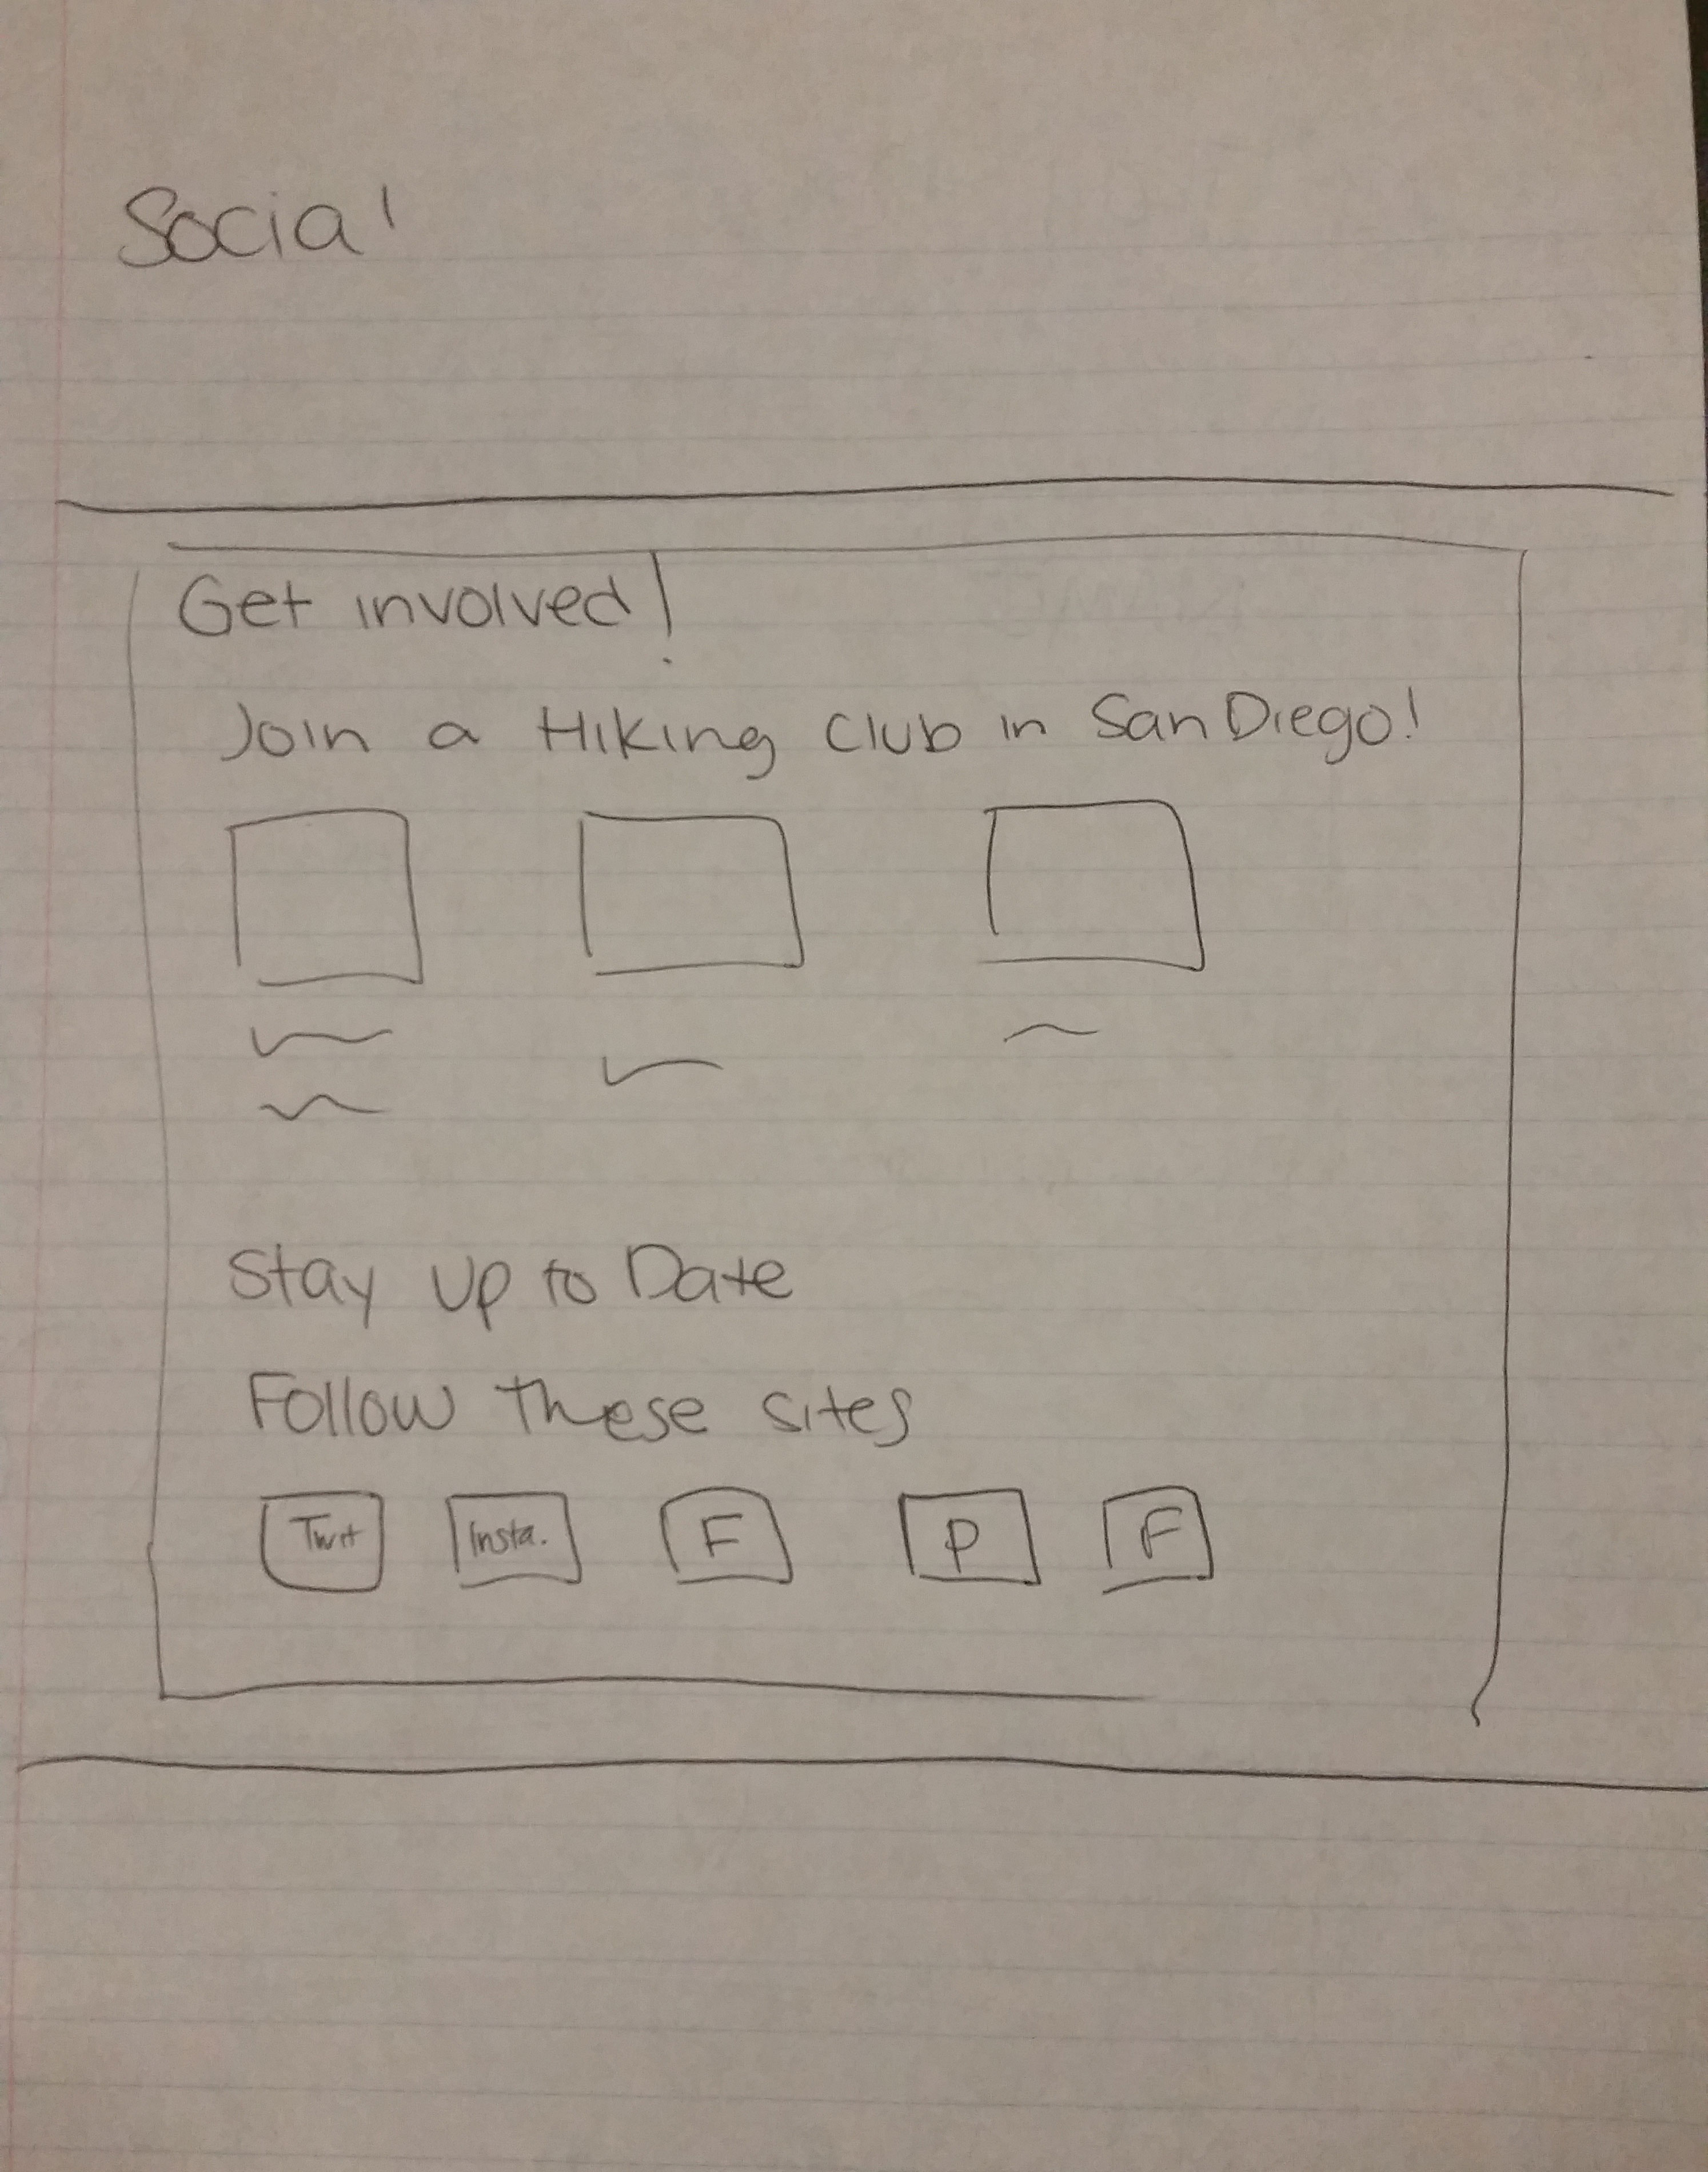 Social
Get involved!
Join a Hiking Club in San Diego!
Stay Up to Date
Follow These sites
Twit Insta. F P F